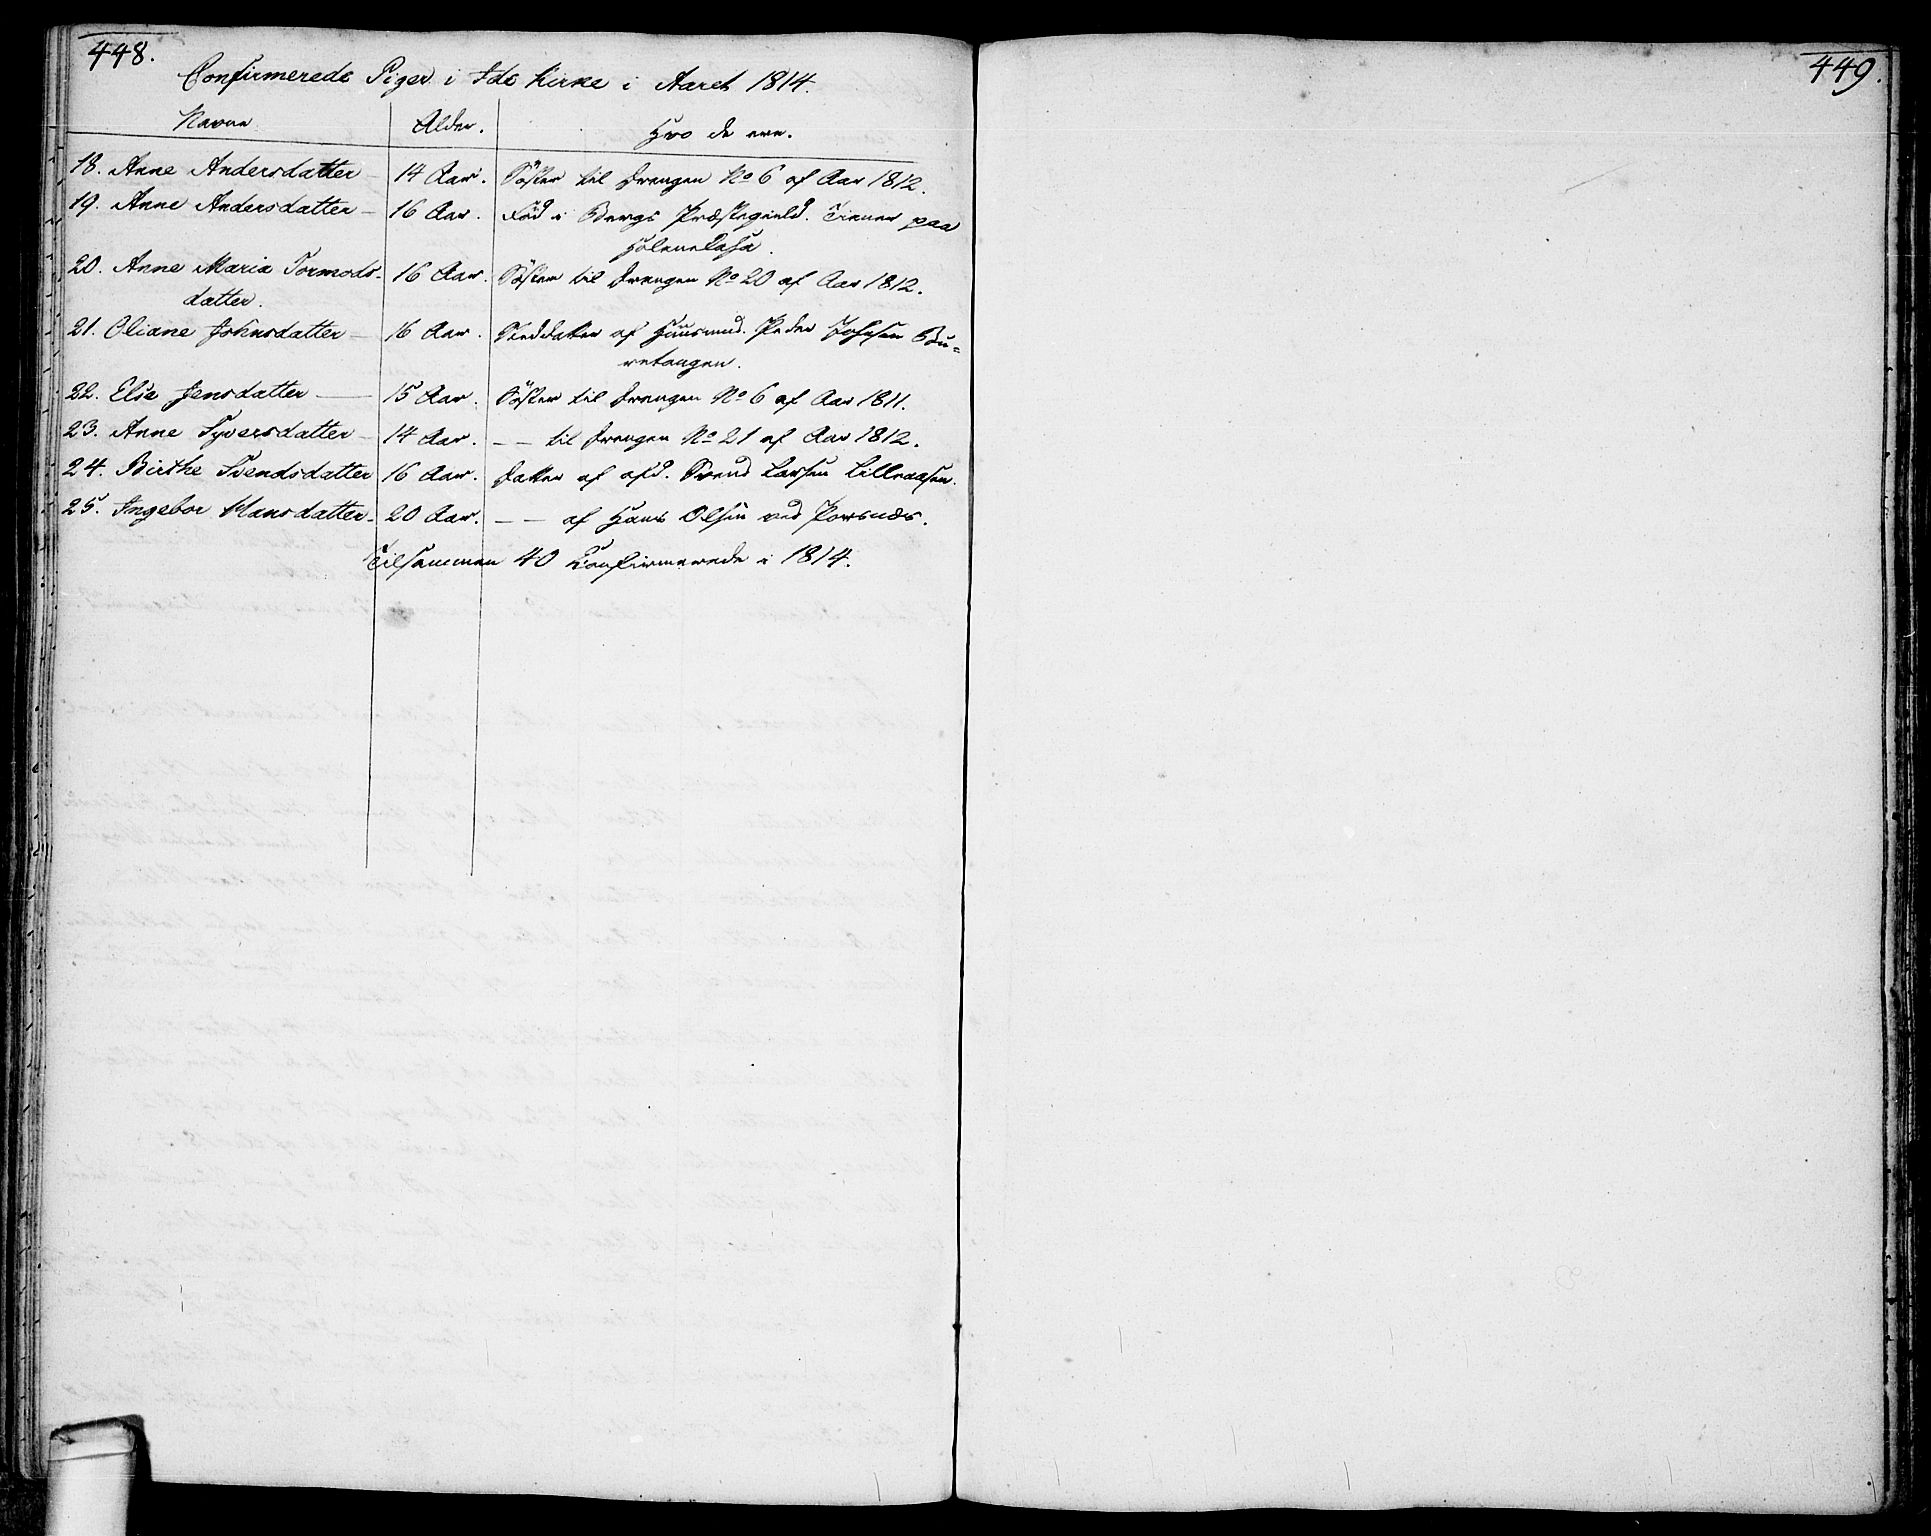 448.
Confirmerede Piger i Ide Kirke i Aaret 1814.
Navne Alder. Hvo de ere.
18. Anne Andersdatter — 14 Aar. Söster til Drengen No 6 af Aar 1812.
19. Anne Andersdatter — 16 Aar. Föd i Bergs Præstegield. Tiener paa
20. Anne Maria Tormods- 16 Aar. Söster til Drengen No 20 af Aar 1812.
datter.
21. Oliane Johnsdatter — 16 Aar. Steddatter af Huusmand. Peder Johnsen Bu=
retangen.
22. Elsa Jensdatter — 15 Aar. Söster til Drengen No 6 af Aar 1811.
23. Anne Syversdatter — 14 Aar. — — til Drengen No 21 af Aar 1812.
24. Birthe Svendsdatter 16 Aar. Datter af afd. Svend Larsen Lilleaasen.
25. Ingebor Hansdatter — 20 Aar. — — af Hans Olsen ved Porsnæs.
Tilsammen 40 Confirmerede i 1814.
449.